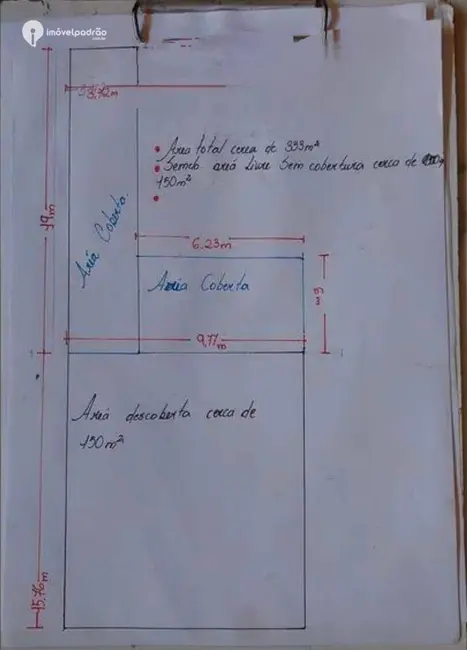 imóvelpadrão
.com.br
3,72m
Area total cerca de 333m²
Sendo areá Livre Sem cobertura cerca de
150m²
19m
Aria Coberta.
6.23m
Aria Coberta
6m
9,77m
Areá descoberta cerca de
150m²
15,76m